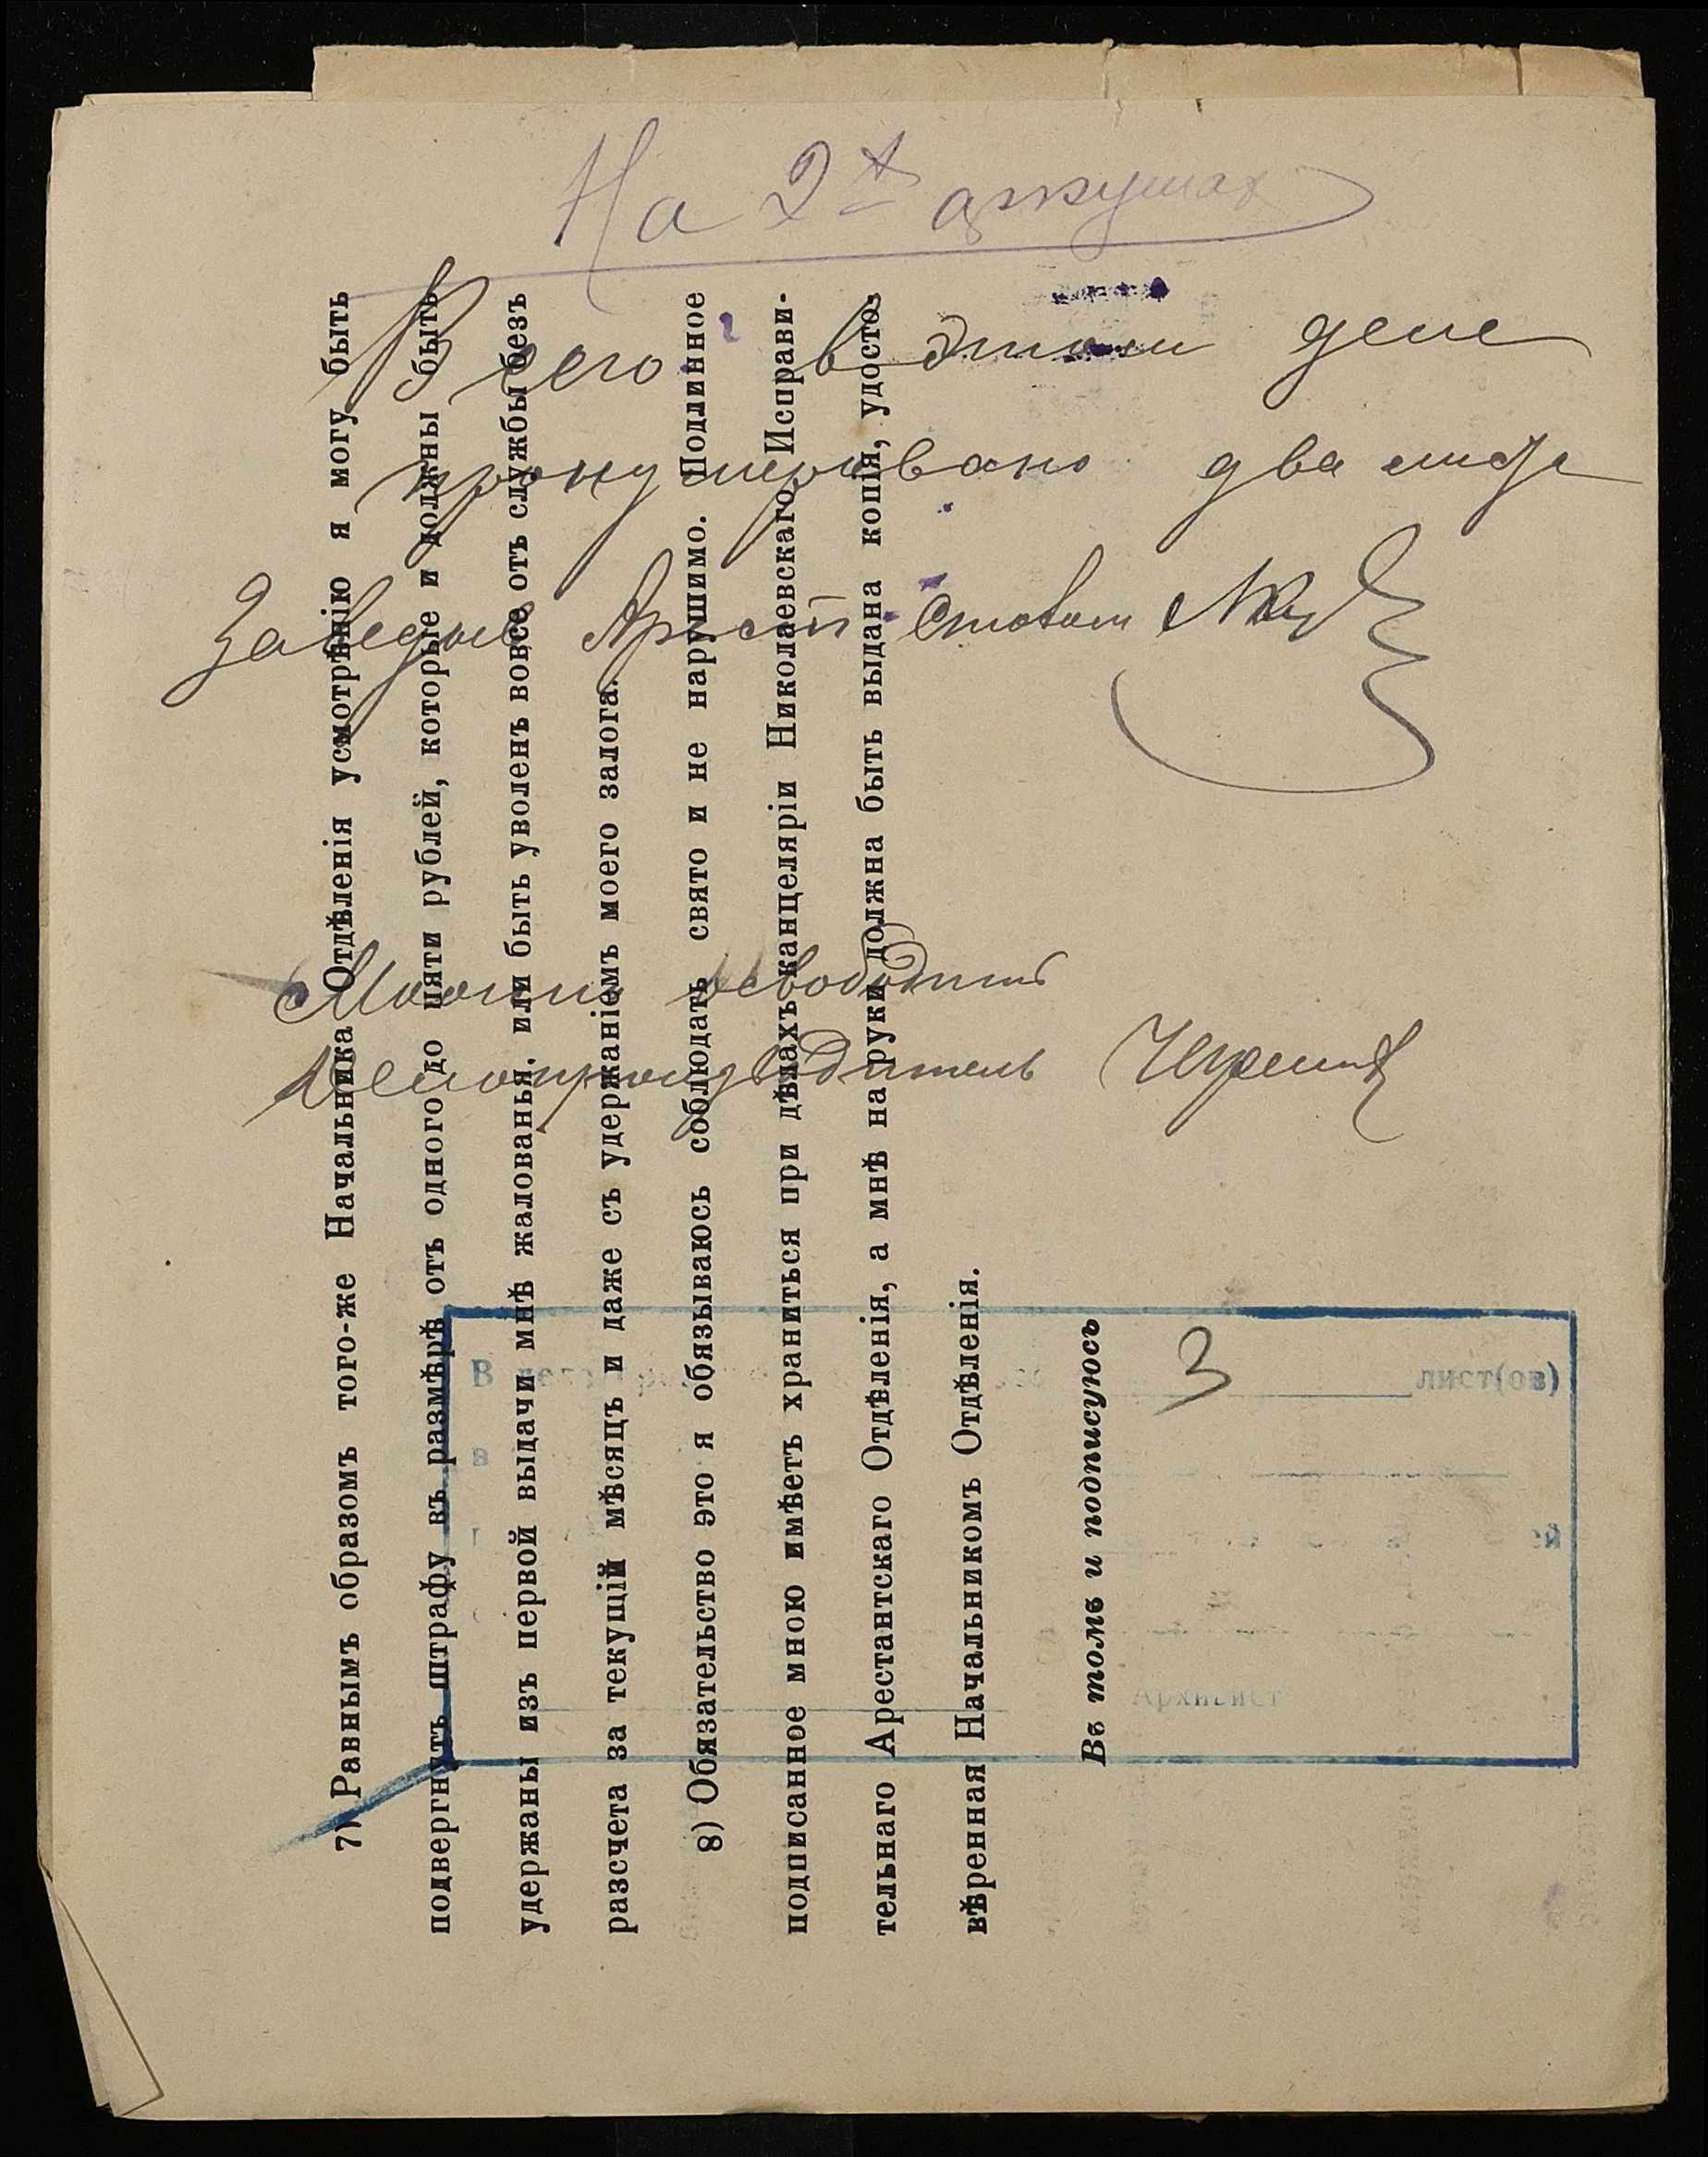 На 2х аркушах
Всего в этом деле
пронумеровано два листа
Арест столом
Можно освободить
Делопроизводитель
7) Равнымъ образомъ того-же Начальника Отдѣленія усмотрѣнію я могу быть
подвергнутъ штрафу въ размѣрѣ отъ одного до пяти рублей, которые и должны быть
удержаны изъ первой выдачи мнѣ жалованья. или быть уволенъ вовсе отъ службы безъ
разсчета за текущій мѣсяцъ и даже съ удержаніемъ моего залога.
8) Обязательство это я обязываюсь соблюдать свято и не нарушимо. Подлинное
подписанное мною имѣетъ храниться при дѣлахъ канцеляріи Николаевскаго Исправи-
тельнаго Арестантскаго Отдѣленія, а мнѣ на руки должна быть выдана копія, удосто-
вѣренная Начальникомъ Отдѣленія.
Въ томъ и подписуюсь
В 3 лист(ов)
в
ей
Архивист